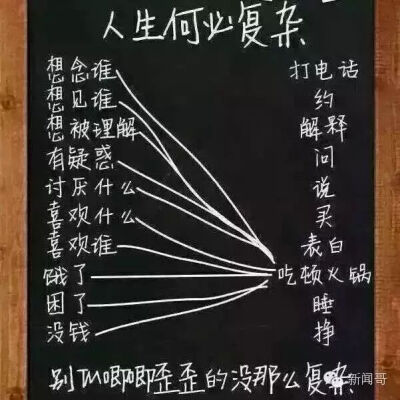 人生何必复杂
想念谁 打电话
想见谁 约
想被理解 解释
有疑惑 问
讨厌什么 说
喜欢什么 买
喜欢谁 表白
饿了 吃顿火锅
困了 睡
没钱 挣
别TM唧唧歪歪的没那么复杂
新闻哥